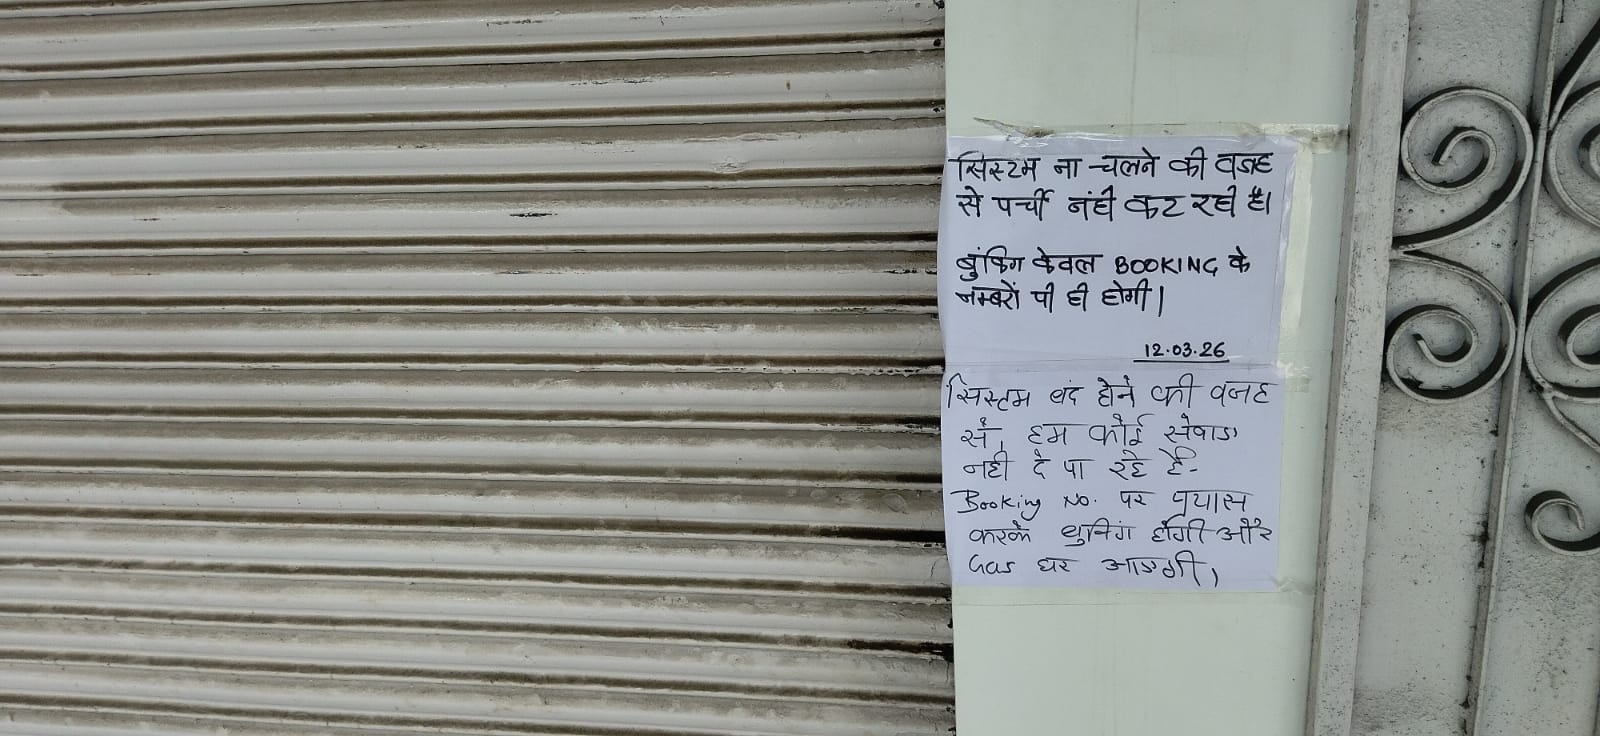 सिस्टम ना चलने की वजह
से पर्ची नंही कट रही है।
बुंकिग केवल BOOKING के
नम्बरों पी ही होगी।
12.03.26
सिस्टम बंद होने की वजह
से, हम कोई सेवाए
नही दे पा रहे है-
Booking No. पर प्रयास
करके बुकिंग होगी और
Gas घर आएगी,